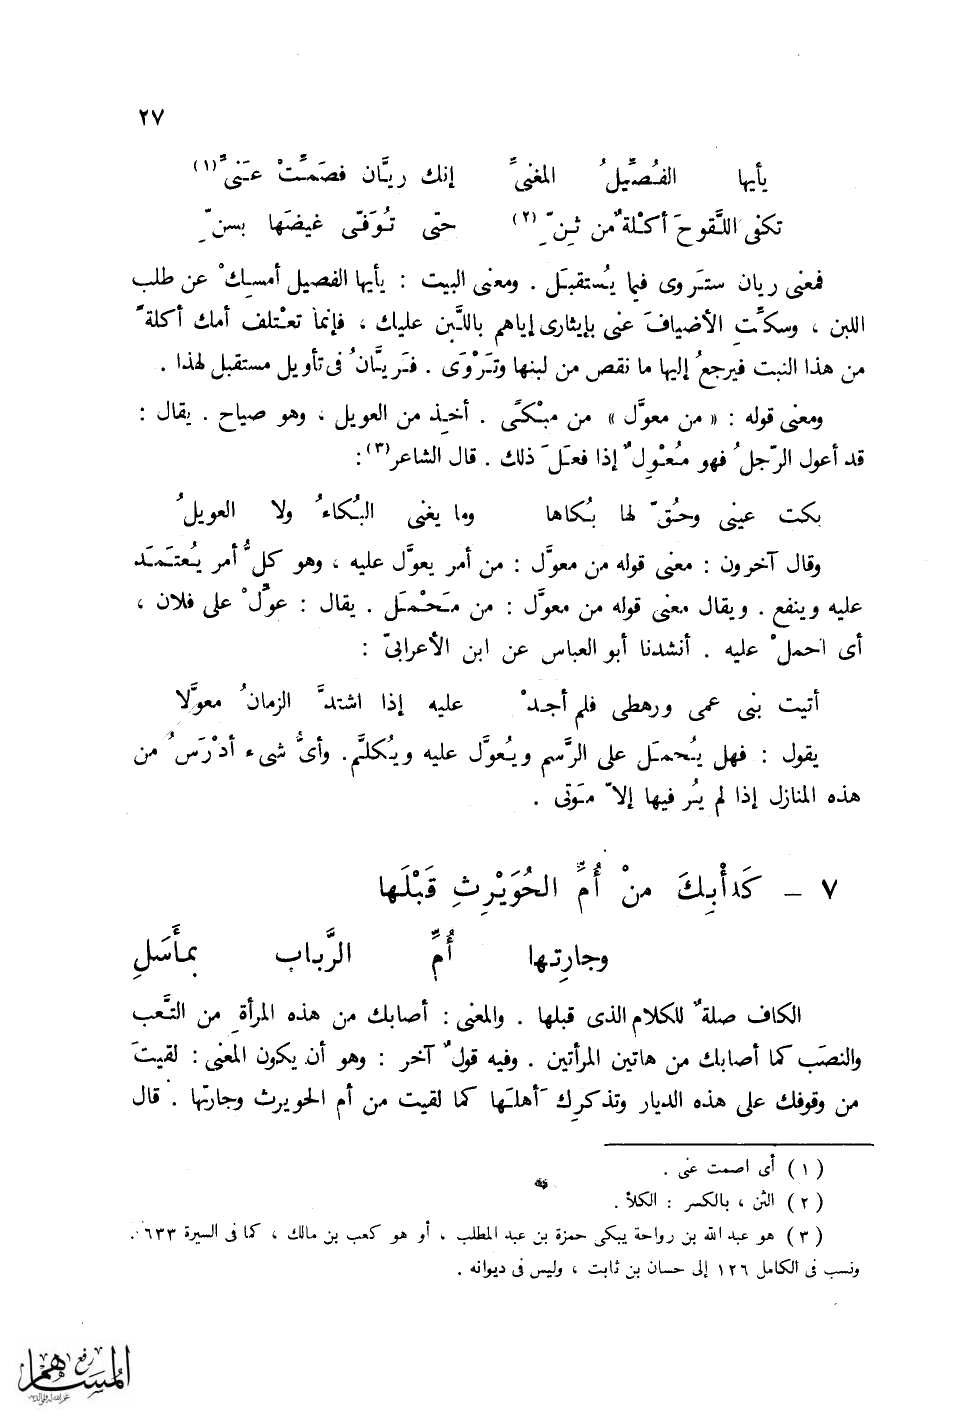 ٢٧
يأيها الفُصَيِّلُ المغنىِّ إنك ريَّان فصَمِّتْ عَنىِّ(١)
تكفى اللَّقوحَ أكْلةٌ من ثِنِّ(٢) حتى تُوَفّى غيضَها بسنِّ
فمعنى ريان ستَروى فيما يُستقبَل . ومعنى البيت : يأيها الفصيل أمسِكْ عن طلب
اللبن ، وسكِّتِ الأضيافَ عنى بإيثارى إياهم باللَّبن عليك ، فإنما تعْتلف أمك أكلةً
من هذا النبت فيرجعُ إليها ما نقص من لبنها وتَرْوَى . فَريَّانُ فى تأويل مستقبل لهذا .
ومعنى قوله : « من معوَّل » من مبْكًى . أخِذ من العويل ، وهو صياح . يقال :
قد أعول الرّجلُ فهو مُعْوِلٌ إذا فعلَ ذلك . قال الشاعر(٣) :
بكت عينى وحُقّ لها بُكاها وما يغنى البُكاءُ ولا العويلُ
وقال آخرون : معنى قوله من معوَّل : من أمر يعوَّل عليه ، وهو كلُّ أمر يُعتَمَد
عليه وينفع . ويقال معنى قوله من معوَّل : من مَحْمَل . يقال : عوِّلْ على فلان ،
أى احملْ عليه . أنشدنا أبو العباس عن ابن الأعرابىّ :
أتيت بنى عمى ورهطى فلم أجدْ عليه إذا اشتدَّ الزمانُ معوَّلا
يقول : فهل يُحمَل على الرَّسم ويُعوَّل عليه ويُكلَّم. وأىُّ شىء أدْرَسُ من
هذه المنازل إذا لم يُر فيها إلاّ مَوتى .
٧ – كَدأْبِكَ منْ أُمِّ الحُوَيْرِثِ قَبْلَها
وجارِتها أُمِّ الرَّبابِ بمأسَلِ
الكاف صلةٌ للكلام الذى قبلها . والمعنى : أصابك من هذه المرأةِ من التَّعب
والنصَب كما أصابك من هاتين المرأتين . وفيه قولٌ آخر : وهو أن يكون المعنى : لقيتَ
من وقوفك على هذه الديار وتذكرِك أهلَها كما لقيت من أم الحويرث وجارتها . قال
(١) أى اصمت عنى .
(٢) الثن ، بالكسر : الكلأ .
(٣) هو عبد الله بن رواحة يبكى حمزة بن عبد المطلب ، أو هو كعب بن مالك ، كما فى السيرة ٦٣٣ .
ونسب فى الكامل ١٢٦ إلى حسان بن ثابت ، وليس فى ديوانه .